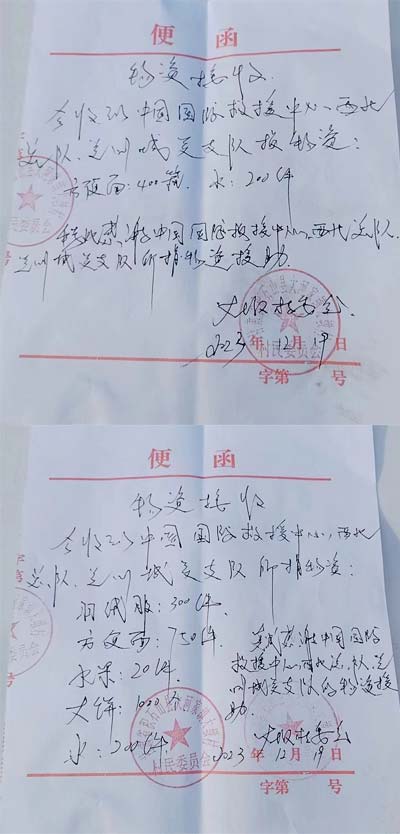 便 函
物资接收
今收到中国国际救援中心、西北
总队、兰州城关支队捐物资:
方便面:400箱 水:200件
特此感谢中国国际救援中心、西北总队、
兰州城关支队所捐物资援助
大河村委会
2023年 12月 19日
村民委员会
字第 号
便 函
物资接收
今收到中国国际救援中心、西北
总队、兰州城关支队所捐物资:
羽绒服:300件
方便面:750件
水果:20件
大饼:1000个
水:200件
感谢中国国际
救援中心西北总队兰
州城关支队的物资援
助.
村民委员会
2023年 12月 19日
字第 号